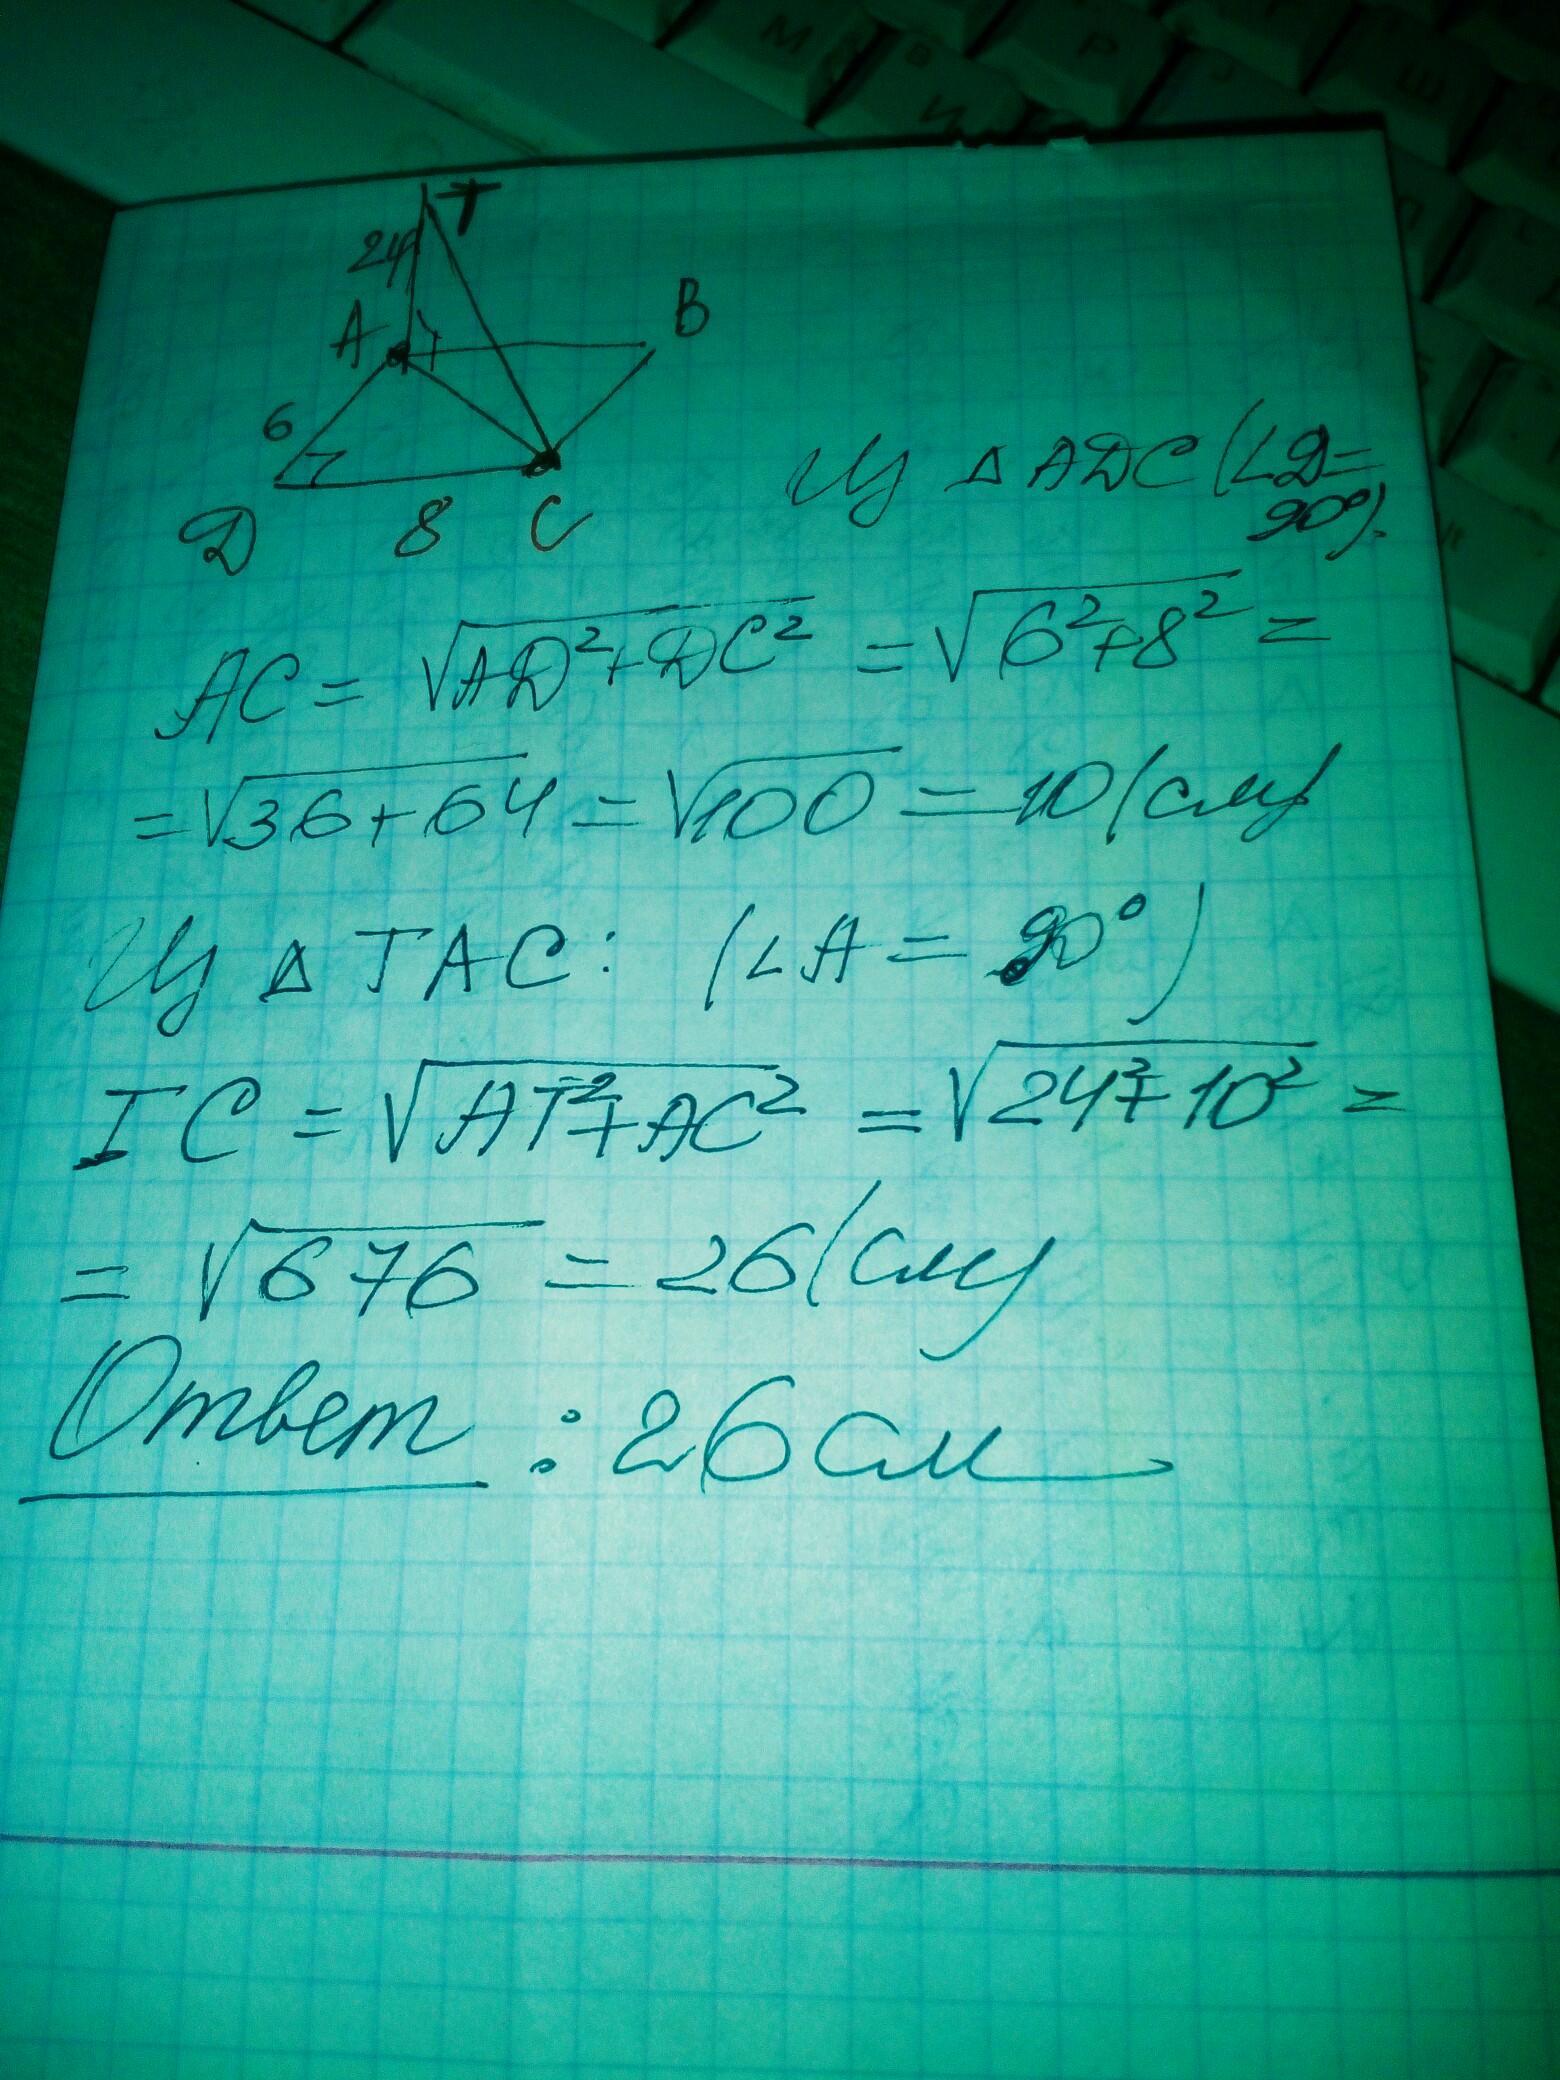 T
24
A
B
6
D
8
C
Из Δ ADC (∠D=
90°).
AC = √AD²+DC² = √6²+8² =
= √36+64 = √100 = 10 (см)
Из Δ TAC: (∠A = 90°)
TC = √AT²+AC² = √24²+10² =
= √676 = 26 (см)
Ответ : 26 см
М
В
И
Р
Ш